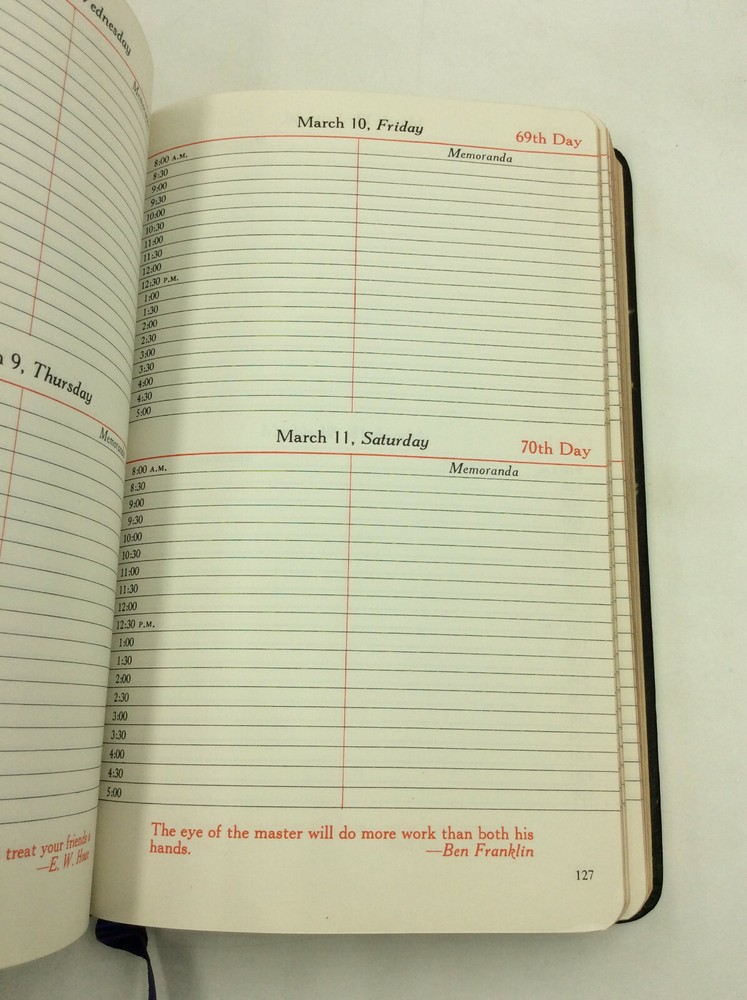 ednesday
9, Thursday
treat your friends
—E. W.
March 10, Friday
69th Day
8:00 A.M.
Memoranda
8:30
9:00
9:30
10:00
10:30
11:00
11:30
12:00
12:30 P.M.
1:00
1:30
2:00
2:30
3:00
3:30
4:00
4:30
5:00
March 11, Saturday
70th Day
8:00 A.M.
Memoranda
8:30
9:00
9:30
10:00
10:30
11:00
11:30
12:00
12:30 P.M.
1:00
1:30
2:00
2:30
3:00
3:30
4:00
4:30
5:00
The eye of the master will do more work than both his
hands.
—Ben Franklin
127